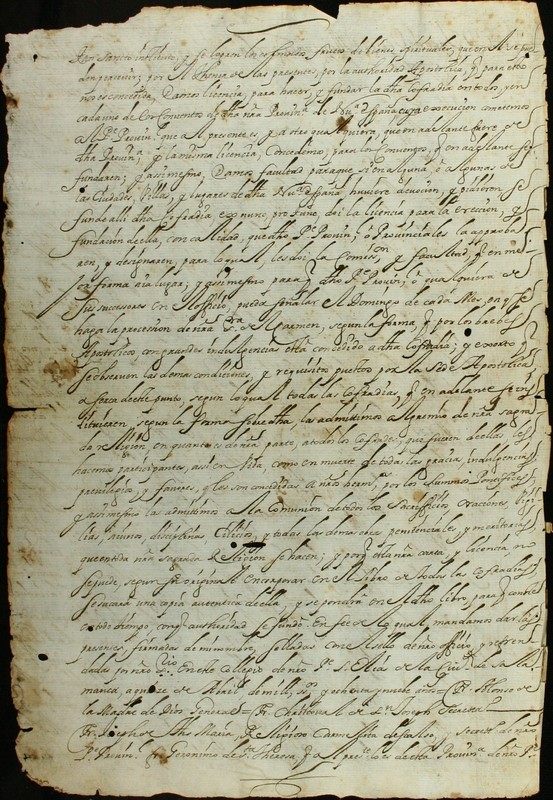 tan sancto instituto, y se logren los copiosos frutos de bienes spirituales, que en el se pue
den percevir; por el thenor de las presentes, por la authoridad Apostolica, q̃ para esto
nos es concedida, Damos licencia, para hacer, y fundar la dha Cofradia en todos, y en
cada uno de los Conventos de dha nrã Provinª de Nuª españa cuya execucion cometemos
a el Pe Provinl que al presente es, y a otro qualquiera, que en adelante fuere de
dha Provinª, y la misma licencia, Concedemos, para los Conventos, q̃ en adelante se
fundaren; y assimesmo, Damos facultad para que si en alguna, o algunas de
las Ciudades, Villas, y lugares de dha Nuª España, huviere devocion, y pidieren
funde alli dha Cofradia ex nunc, pro tunc, doi la licencia para la ereccion, y
fundacion della, con calidad, que dho Pe Provinl, o Provinciales la aprobа
ren, y designaren, para lo qual, les doi la Comisson, y facultad, q̃ en me
jor forma aia lugar; y assimesmo para q̃ dho Pe Provinl, o qualquiera de
sus sucessores en el officio, pueda señalar el Domingo de cada Mes, en q̃ se
haga la procession de nrã Srã de el Carmen, segun la forma, q̃ por los brebes
Apostolicos, con grandes indulgencias està concedido a dha Cofradia; y exorto q̃
se observen las demas condiciones, y requisitos puestos por la Sede Apostolica
a cerca deste punto, segun lo qual todas las Cofradias, q̃ en adelante se ins
tituieren, segun la forma sobredha, las admittimos a el gremio de nrã sagra
da religion, en quanto es de nrã parte, a todos los Cofrades, que fueren dellas les
hacemos participantes, assi en vida, como en muerte de todas las gracias, indulgencias
previlegios, y favores, q̃ les son concedidos a nros hermos, por los Summos Pontifices
y assimesmo las admitimos a la Comunion de todos los Sacrificios, Oraciones, Vigi
lias, aiunos, disciplinas, Cilicios, y todas las demas obras penitenciales, y meritorias
que en toda nrã sagrada Religion se hacen; y por q̃ esta nrã carta, y licencia no
se pide, segun su original encorporar en el libro de todas las Cofradias
se sacarà una copia autentica della, y se pondrà en el dho libro, para q̃ conste
en todo tiempo, con q̃ authoridad se fundò. En fee de lo qual, mandamos dar las
presentes, firmadas de mi nombre, selladas con el sello de nrõ officio, y refren
dadas por nrõ Srio En este Collegio de nrõ Pe S. Elias de la Ciud de Sala
manca, a quince de Abril de mill, seisos, y ochenta y nueve años = Fr. Alonso de
la Madre de Dios General = Fr. Christoval de Sn Joseph Secretto
Fr. Joseph de Jhs Maria, Religioso Carmelita descalso, y Secrett de nrõ
Pe Provinl Fr. Geronimo de Sta Theresa, q̃ a el preste lo es desta Provinª de nrõ Pe